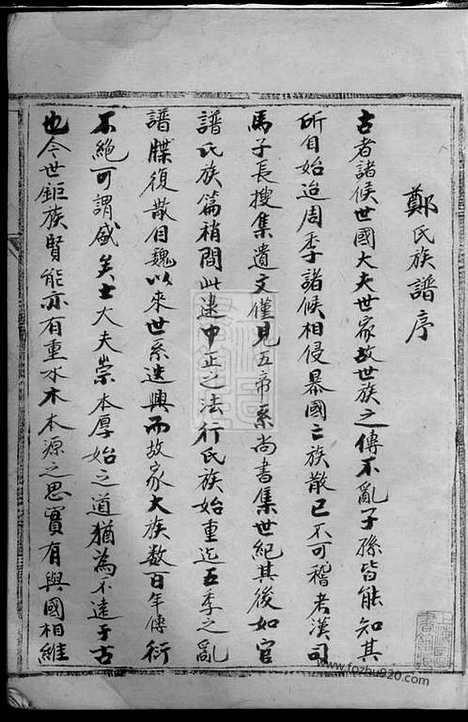 鄭氏族譜序
古者諸侯世國大夫世家故世族之傳不亂子孫皆能知其
所自始迨周季諸侯相侵暴國亡族散已不可稽者漢司
馬子長搜集遺文僅見五帝系尚書集世紀其後如官
譜氏族篇稍間此逮中正之法行氏族始重迄五季之亂
譜牒復散自魏以來世系迭興而故家大族数百年傳衍
不絕可謂盛矣士大夫崇本厚始之道猶為不遠于古
也今世鉅族賢能亦有重水木本源之思實有與國相維
www.fozhu920.com